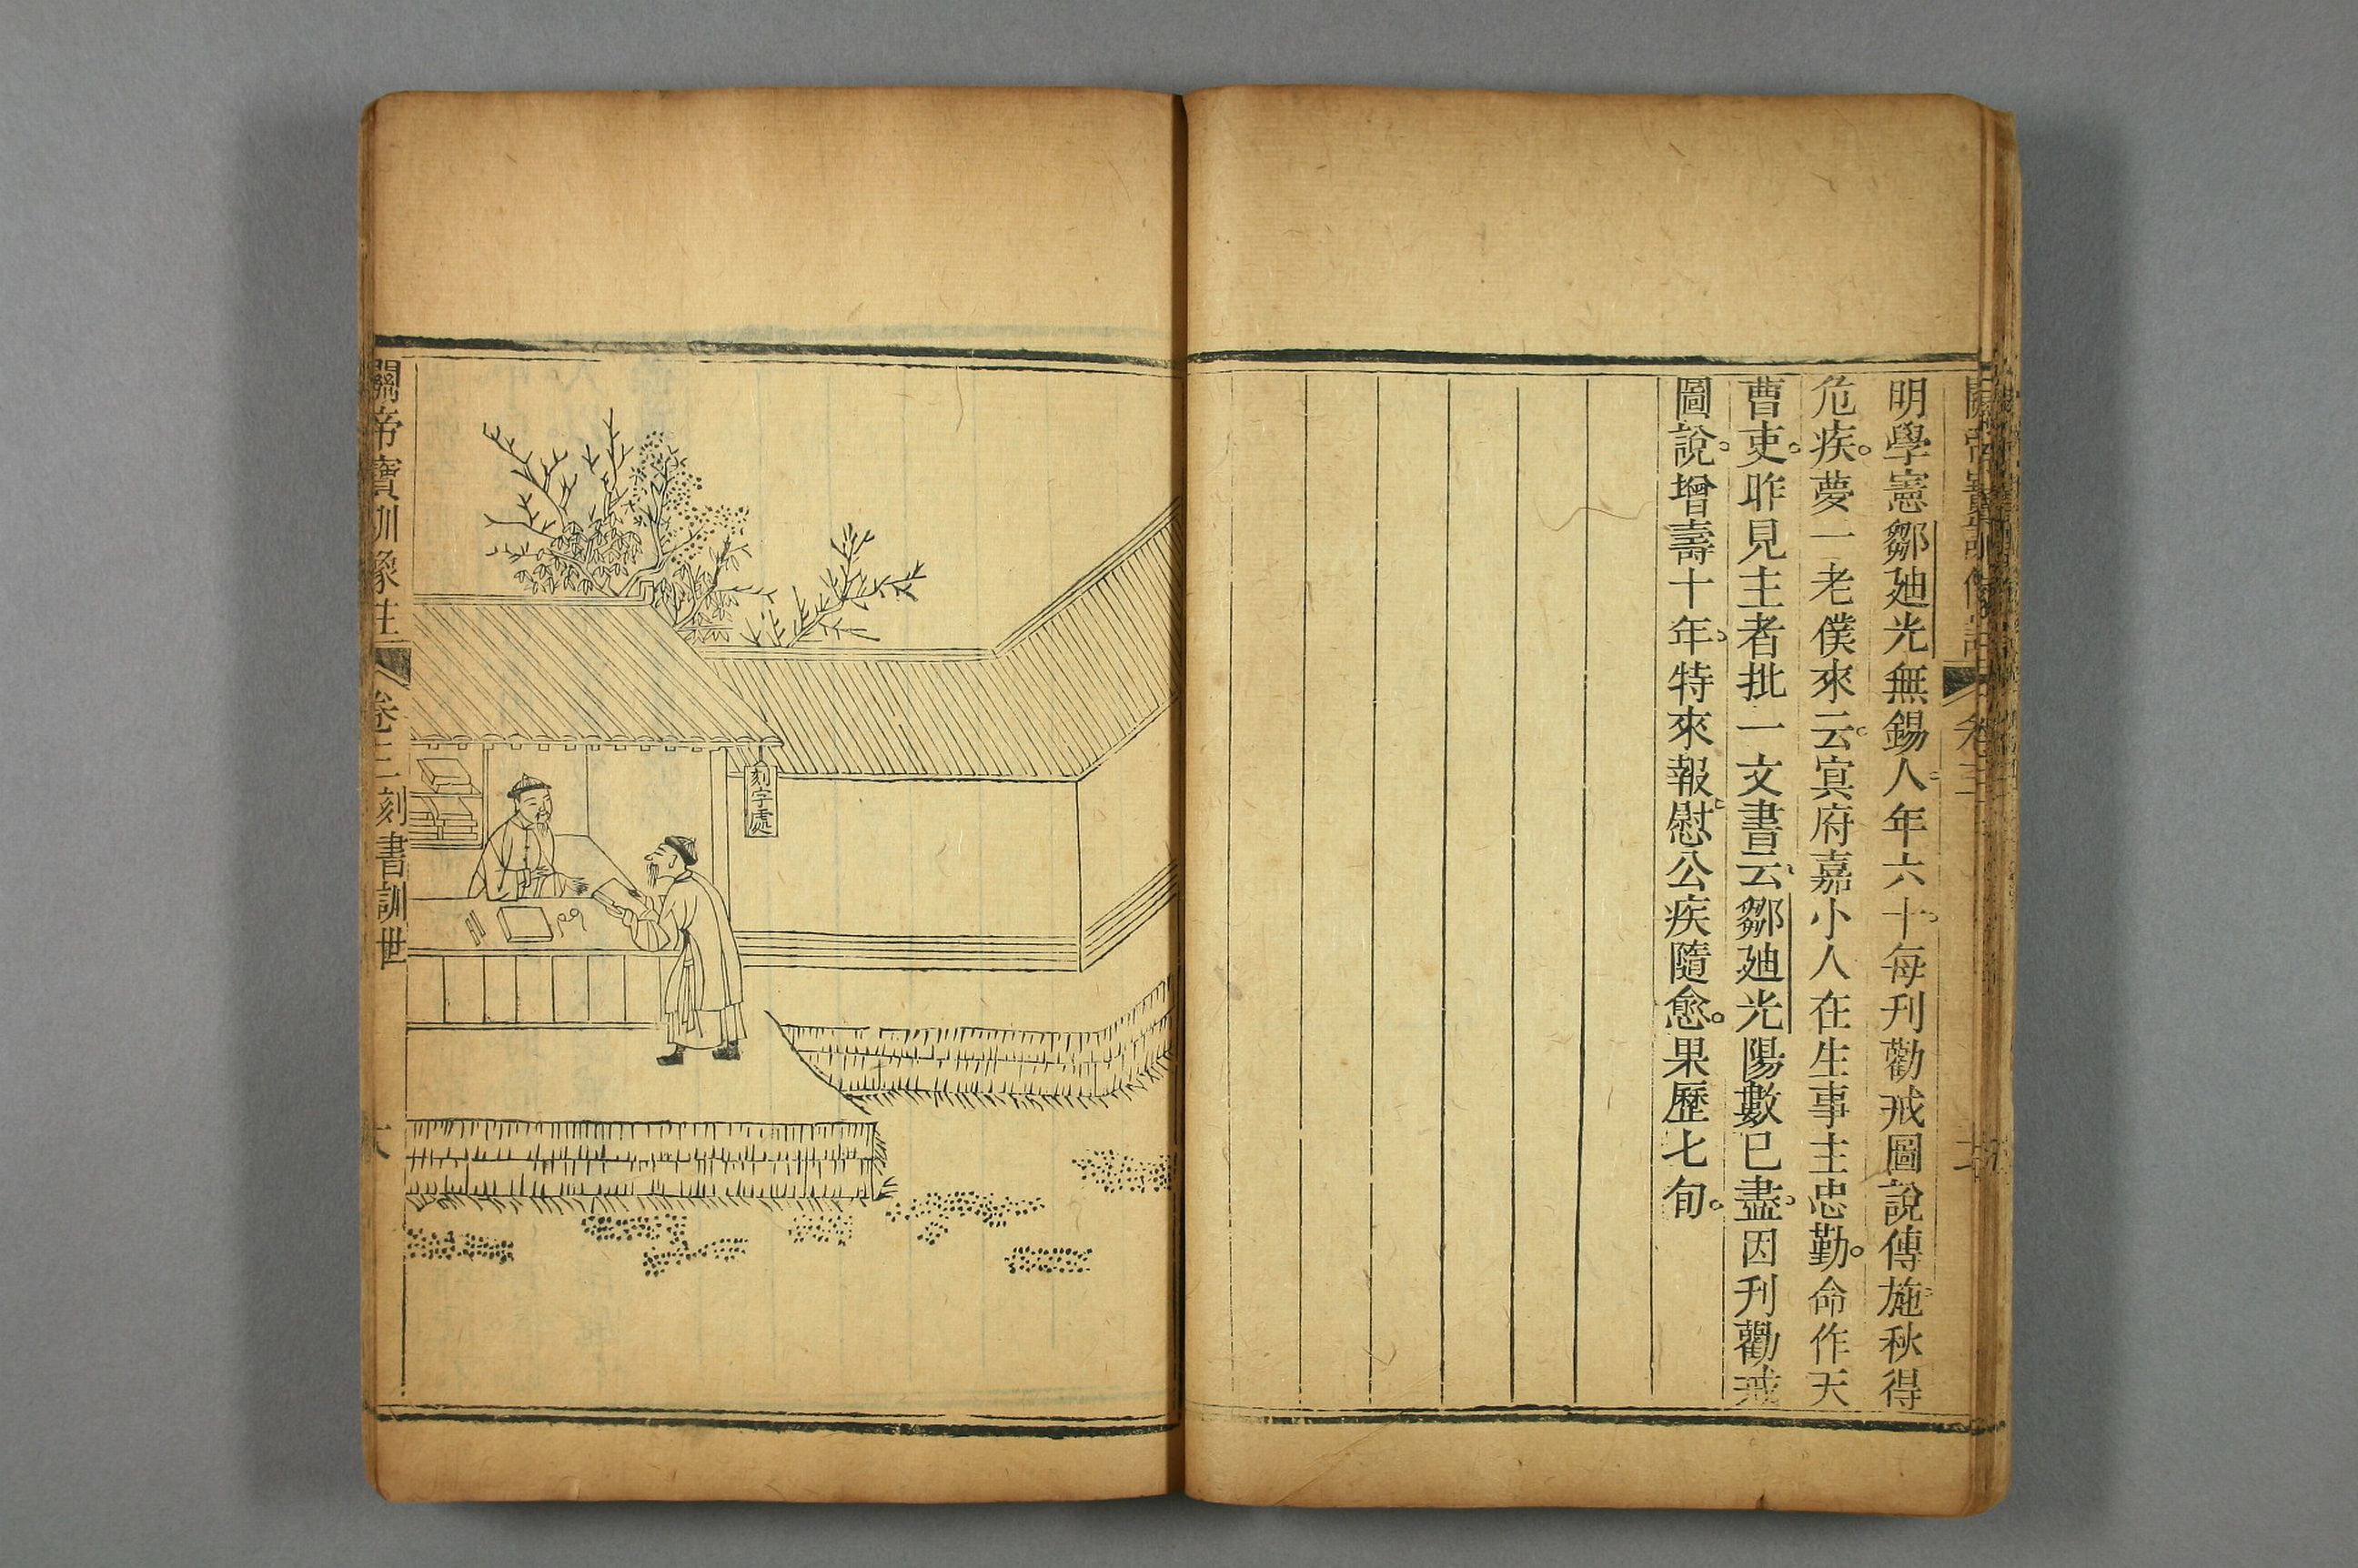 明學憲鄒廸光無錫人年六十每刋勸戒圖說傳施秋得
危疾夢一老僕來云冥府嘉小人在生事主忠勤命作天
曹吏昨見主者批一文書云鄒廸光陽數已盡因刋勸戒
圖說增壽十年特來報慰公疾隨愈果歷七旬
刻字處
關帝寶訓像註
卷三
刻書訓世